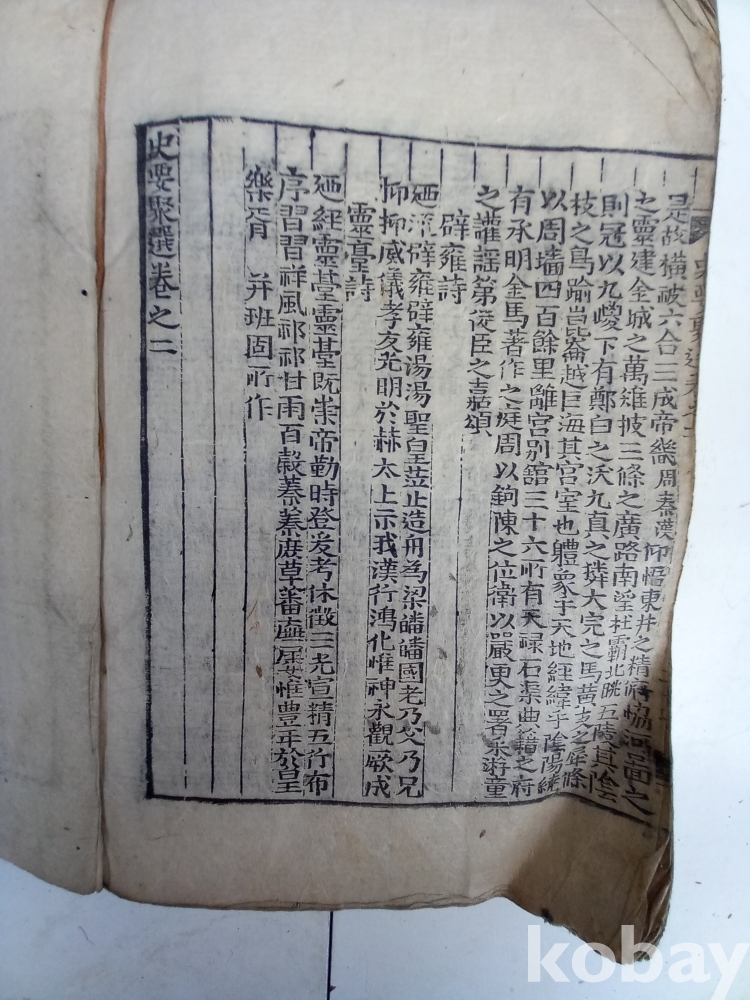 史要聚選卷之二
是故橫被六合三成帝畿周秦漢仰悟東井之精俯協河圖之
之靈建金城之萬雉披三條之廣路南望杜霸北眺五陵其陰
則冠以九嵕下有鄭白之沃九真之獜大宛之馬黃支之犀條
枝之鳥踰崑崙越巨海其宮室也體象乎天地經緯乎陰陽繞
以周墻四百餘里離宮別舘三十六所有天祿石渠典籍之府
有承明金馬著作之庭周以鉤陳之位衛以嚴更之署采游童
之讙謠第從臣之嘉頌
辟雍詩
廼流辟雍辟雍湯湯聖皇莅止造舟為梁皤皤國老乃父乃兄
抑抑威儀孝友光明於赫太上示我漢行鴻化惟神永觀厥成
靈臺詩
廼經靈臺靈臺既崇帝勤時登爰考休徵三光宣精五行布
序習習祥風祁祁甘雨百穀蓁蓁庶草蕃廡屢惟豊年於皇
樂胥 并班固所作
史要聚選卷之二
kobay